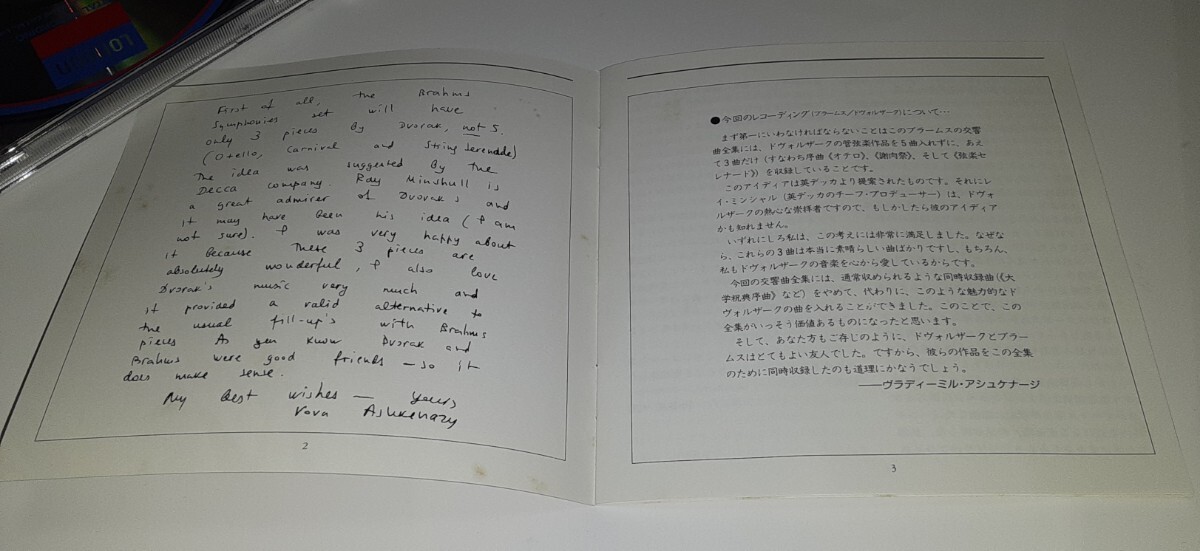 LONDON
First of all, the Brahms
Symphonies set will have
only 3 pieces by Dvorak, not 5.
(Otello, Carnival and String Serenade)
The idea was suggested by the
Decca company. Ray Minshull is
a great admirer of Dvorak's and
it may have been his idea (I am
not sure). I was very happy about
it because these 3 pieces are
absolutely wonderful, I also love
Dvorak's music very much and
it provided a valid alternative to
the usual fill-up's with Brahms
pieces As you know Dvorak and
Brahms were good friends — so it
does make sense.
My best wishes — yours
Vova Ashkenazy
2
●今回のレコーディング(ブラームス/ドヴォルザーク)について…
まず第一にいわなければならないことはこのブラームスの交響
曲全集には、ドヴォルザークの管弦楽作品を5曲入れずに、あえ
て3曲だけ(すなわち序曲《オテロ》、《謝肉祭》、そして《弦楽セ
レナード》)を収録していることです。
このアイディアは英デッカより提案されたものです。それにレ
イ・ミンシャル(英デッカのチーフ・プロデューサー)は、ドヴォ
ルザークの熱心な崇拝者ですので、もしかしたら彼のアイディア
かも知れません。
いずれにしろ私は、この考えには非常に満足しました。なぜな
ら、これらの3曲は本当に素晴らしい曲ばかりですし、もちろん、
私もドヴォルザークの音楽を心から愛しているからです。
今回の交響曲全集には、通常収められるような同時収録曲(《大
学祝典序曲》など)をやめて、代わりに、このような魅力的なド
ヴォルザークの曲を入れることができました。このことで、この
全集がいっそう価値あるものになったと思います。
そして、あなた方もご存じのように、ドヴォルザークとブラー
ムスはとてもよい友人でした。ですから、彼らの作品をこの全集
のために同時収録したのも道理にかなうでしょう。
——ヴラディーミル・アシュケナージ
3